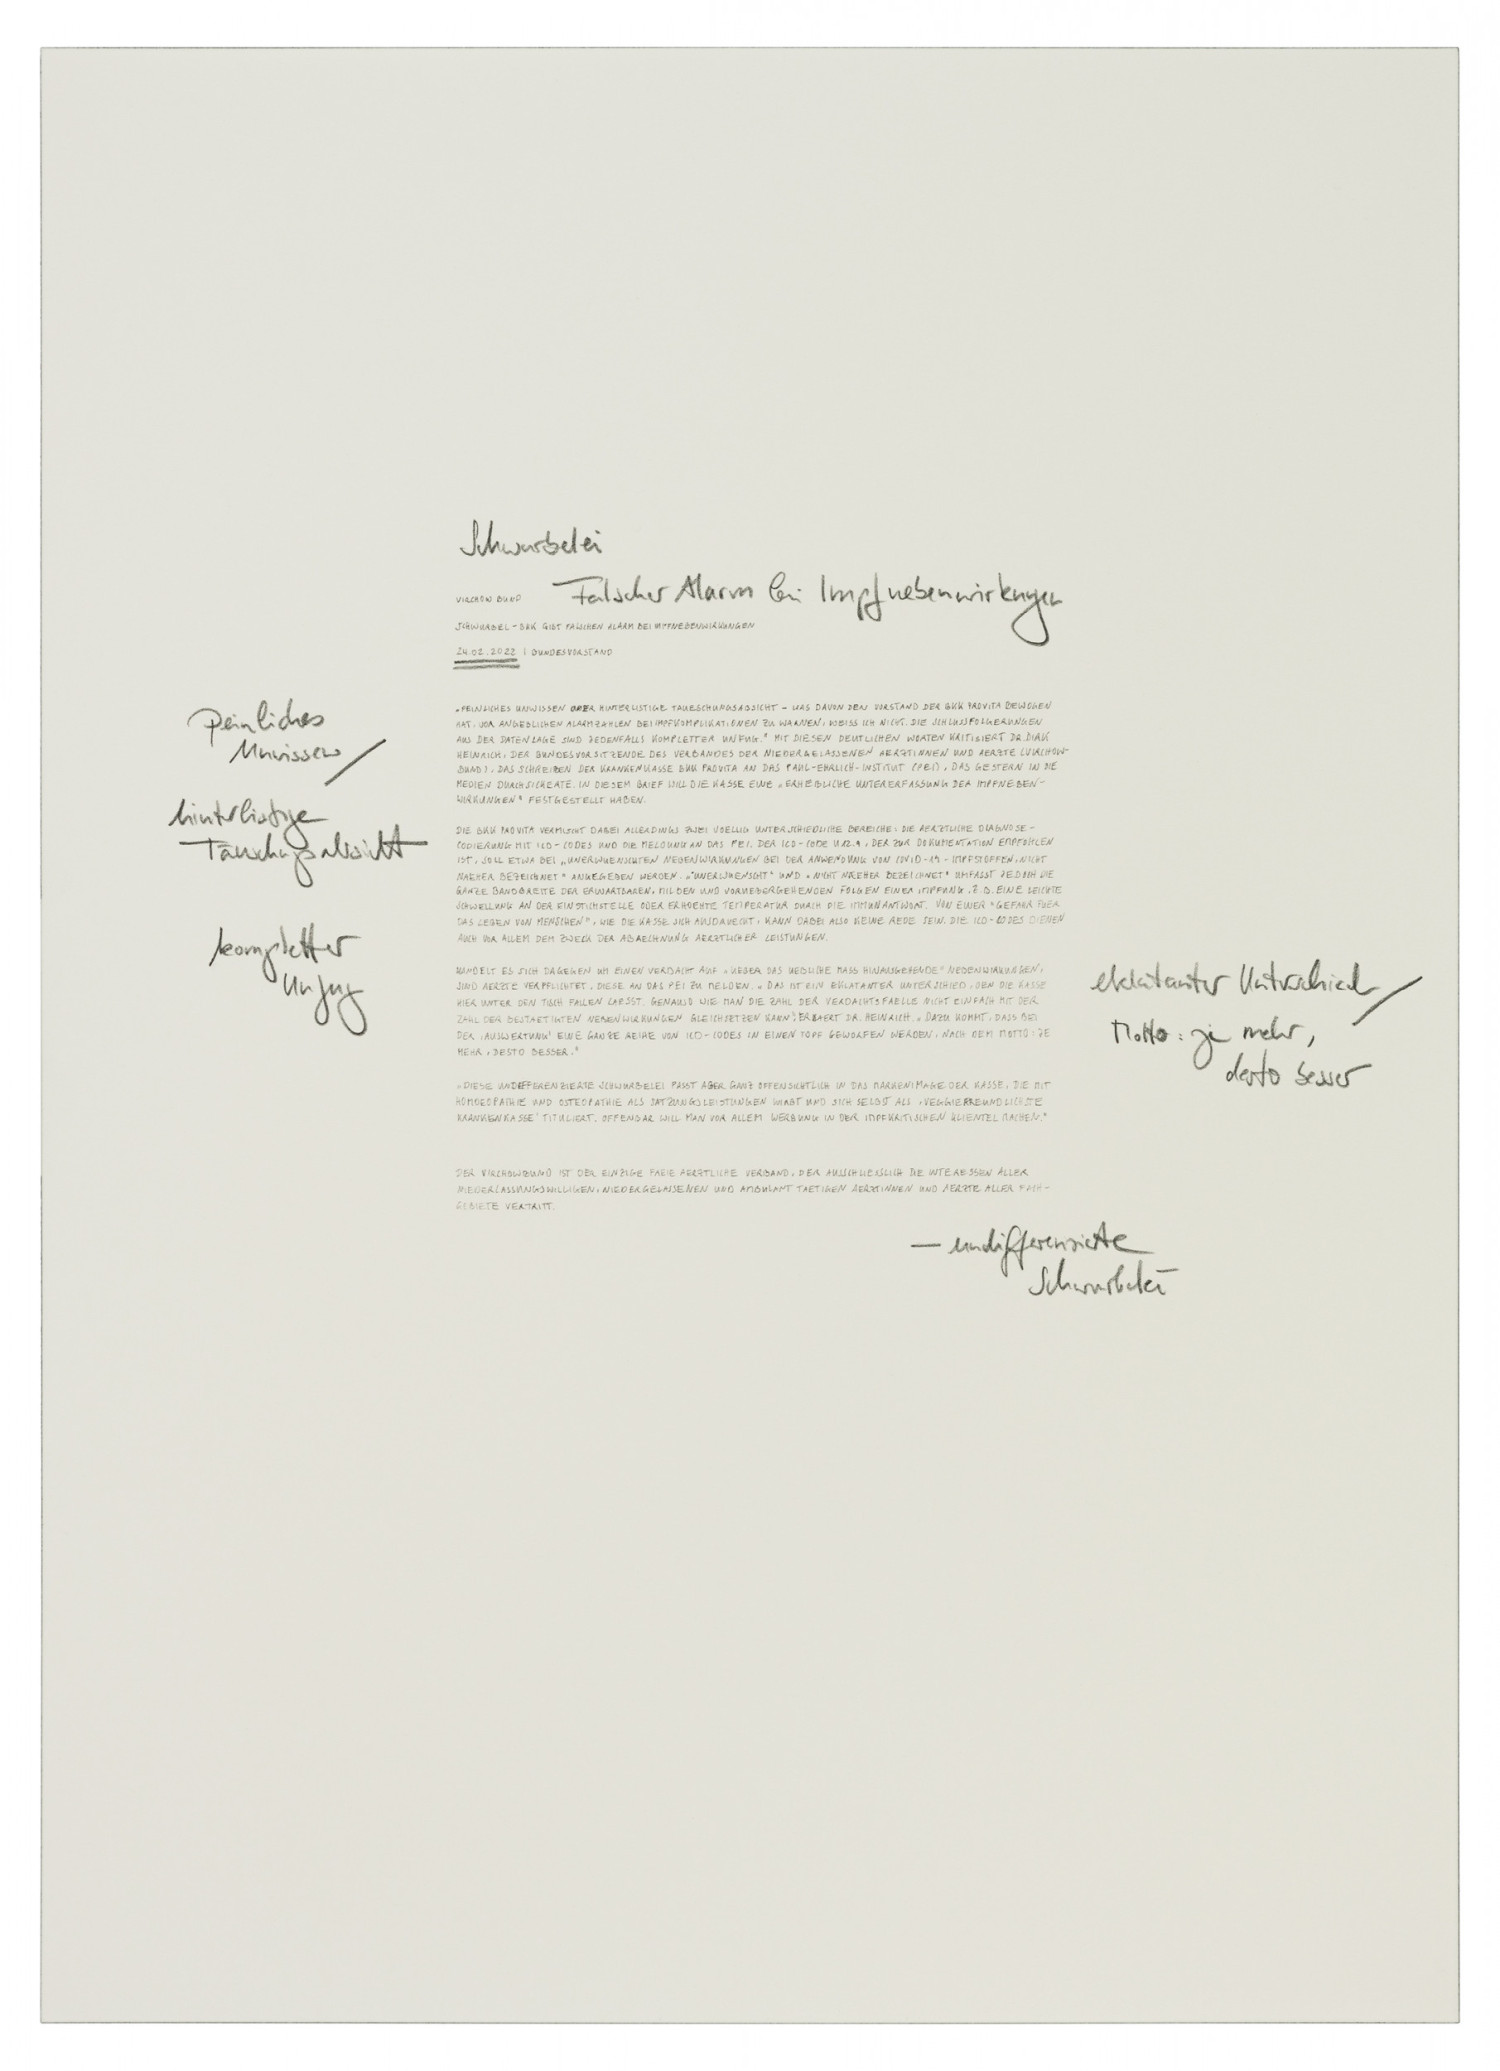 Schwurbelei
Falscher Alarm bei Impfnebenwirkungen
VIRCHOW BUND
SCHWURBEL-BKK GIBT FALSCHEN ALARM BEI IMPFNEBENWIRKUNGEN
24.02.2022 | BUNDESVORSTAND
peinliches
Unwissen /
hinterlistige
Täuschungsabsicht
kompletter
Unfug
„PEINLICHES UNWISSEN ODER HINTERLISTIGE TAUESCHUNGSABSICHT – WAS DAVON DEN VORSTAND DER BKK PROVITA BEWOGEN
HAT, VOR ANGEBLICHEN ALARMZAHLEN BEI IMPFKOMPLIKATIONEN ZU WARNEN, WEISS ICH NICHT. DIE SCHLUSSFOLGERUNGEN
AUS DER DATENLAGE SIND JEDENFALLS KOMPLETTER UNFUG.“ MIT DIESEN DEUTLICHEN WORTEN KRITISIERT DR. DIRK
HEINRICH, DER BUNDESVORSITZENDE DES VERBANDES DER NIEDERGELASSENEN AERZTINNEN UND AERZTE (VIRCHOW-
BUND), DAS SCHREIBEN DER KRANKENKASSE BKK PROVITA AN DAS PAUL-EHRLICH-INSTITUT (PEI), DAS GESTERN IN DIE
MEDIEN DURCHSICKERTE. IN DIESEM BRIEF WILL DIE KASSE EINE „ERHEBLICHE UNTERERFASSUNG DER IMPFNEBEN-
WIRKUNGEN“ FESTGESTELLT HABEN.
DIE BKK PROVITA VERMISCHT DABEI ALLERDINGS ZWEI VOELLIG UNTERSCHIEDLICHE BEREICHE: DIE AERZTLICHE DIAGNOSE-
CODIERUNG MIT ICD-CODES UND DIE MELDUNG AN DAS PEI. DER ICD-CODE U12.9, DER ZUR DOKUMENTATION EMPFOHLEN
IST, SOLL ETWA BEI „UNERWUENSCHTEN NEBENWIRKUNGEN BEI DER ANWENDUNG VON COVID-19-IMPFSTOFFEN, NICHT
NAEHER BEZEICHNET“ ANGEGEBEN WERDEN. „UNERWUENSCHT“ UND „NICHT NAEHER BEZEICHNET“ UMFASST JEDOCH DIE
GANZE BANDBREITE DER ERWARTBAREN, MILDEN UND VORUEBERGEHENDEN FOLGEN EINER IMPFUNG, Z.B. EINE LEICHTE
SCHWELLUNG AN DER EINSTICHSTELLE ODER ERHOEHTE TEMPERATUR DURCH DIE IMMUNANTWORT. VON EINER "GEFAHR FUER
DAS LEBEN VON MENSCHEN", WIE DIE KASSE SICH AUSDRUECKT, KANN DABEI ALSO KEINE REDE SEIN. DIE ICD-CODES DIENEN
AUCH VOR ALLEM DEM ZWECK DER ABRECHNUNG AERZTLICHER LEISTUNGEN.
HANDELT ES SICH DAGEGEN UM EINEN VERDACHT AUF „UEBER DAS UEBLICHE MASS HINAUSGEHENDE“ NEBENWIRKUNGEN,
SIND AERZTE VERPFLICHTET, DIESE AN DAS PEI ZU MELDEN. „DAS IST EIN EKLATANTER UNTERSCHIED, DEN DIE KASSE
HIER UNTER DEN TISCH FALLEN LAESST. GENAUSO WIE MAN DIE ZAHL DER VERDACHTSFAELLE NICHT EINFACH MIT DER
ZAHL DER BESTAETIGTEN NEBENWIRKUNGEN GLEICHSETZEN KANN“, ERKLAERT DR. HEINRICH. „DAZU KOMMT, DASS BEI
DER ‚AUSWERTUNG‘ EINE GANZE REIHE VON ICD-CODES IN EINEN TOPF GEWORFEN WERDEN, NACH DEM MOTTO: JE
MEHR, DESTO BESSER.“
eklatanter Unterschied /
Motto: je mehr,
desto besser
„DIESE UNDIFFERENZIERTE SCHWURBELEI PASST ABER GANZ OFFENSICHTLICH IN DAS MARKENIMAGE DER KASSE, DIE MIT
HOMOEOPATHIE UND OSTEOPATHIE ALS SATZUNGSLEISTUNGEN WIRBT UND SICH SELBST ALS ‚VEGGIEFREUNDLICHSTE
KRANKENKASSE‘ TITULIERT. OFFENBAR WILL MAN VOR ALLEM WERBUNG IN DER IMPFKRITISCHEN KLIENTEL MACHEN.“
DER VIRCHOWBUND IST DER EINZIGE FREIE AERZTLICHE VERBAND, DER AUSSCHLIESSLICH DIE INTERESSEN ALLER
NIEDERLASSUNGSWILLIGEN, NIEDERGELASSENEN UND AMBULANT TAETIGEN AERZTINNEN UND AERZTE ALLER FACH-
GEBIETE VERTRITT.
— undifferenzierte
Schwurbelei